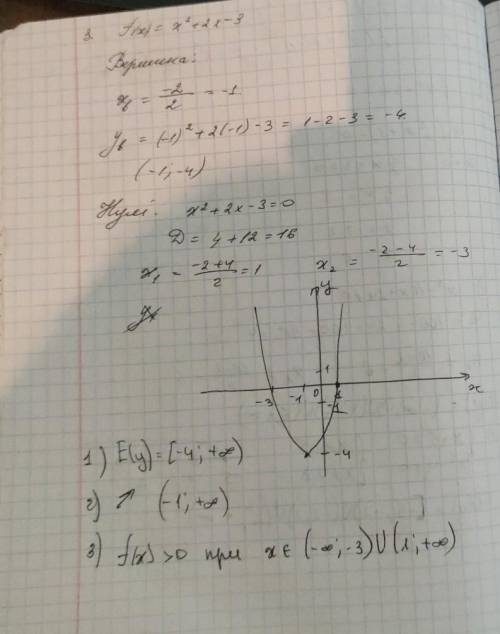 3. f(x) = x² + 2x - 3
Вершина:
x_в = -2/2 = -1
y_в = (-1)² + 2(-1) - 3 = 1 - 2 - 3 = -4
(-1; -4)
Нулі: x² + 2x - 3 = 0
D = 4 + 12 = 16
x₁ = (-2+4)/2 = 1 x₂ = (-2-4)/2 = -3
y
1
-3 -1 0 1 x
-1
-4
1) E(y) = [-4; +∞)
2) ↗ (-1; +∞)
3) f(x) > 0 при x ∈ (-∞; -3) ∪ (1; +∞)